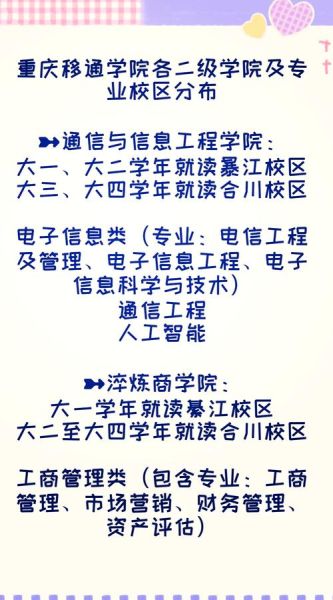 重庆移通学院各二级学院及专
业校区分布
➽通信与信息工程学院：
大一、大二学年就读綦江校区
大三、大四学年就读合川校区
电子信息类（专业：电信工程
及管理、电子信息工程、电子
信息科学与技术）
通信工程
人工智能
➽淬炼商学院：
大一学年就读綦江校区
大二至大四学年就读合川校区
工商管理类（包含专业：工商
管理、市场营销、财务管理、
资产评估）